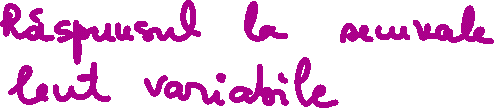 Răspunsul la semnale
lent variabile